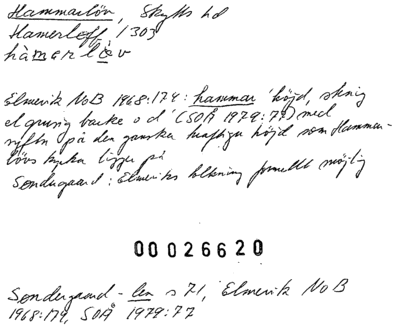 Hammarlöv, Skytts hd
Hamerloff 1303
hàmarlö̀v
Elmevik NoB 1968:174: hammar 'höjd, stenig
el grusig backe o d' (SOÅ 1979:77) med
syftn på den ganska kraftiga höjd som Hammar-
lövs kyrka ligger på
Søndergaard: Elmeviks tolkning formellt möjlig
00026620
Søndergaard - lev s 71, Elmevik NoB
1968:174, SOÅ 1979:77